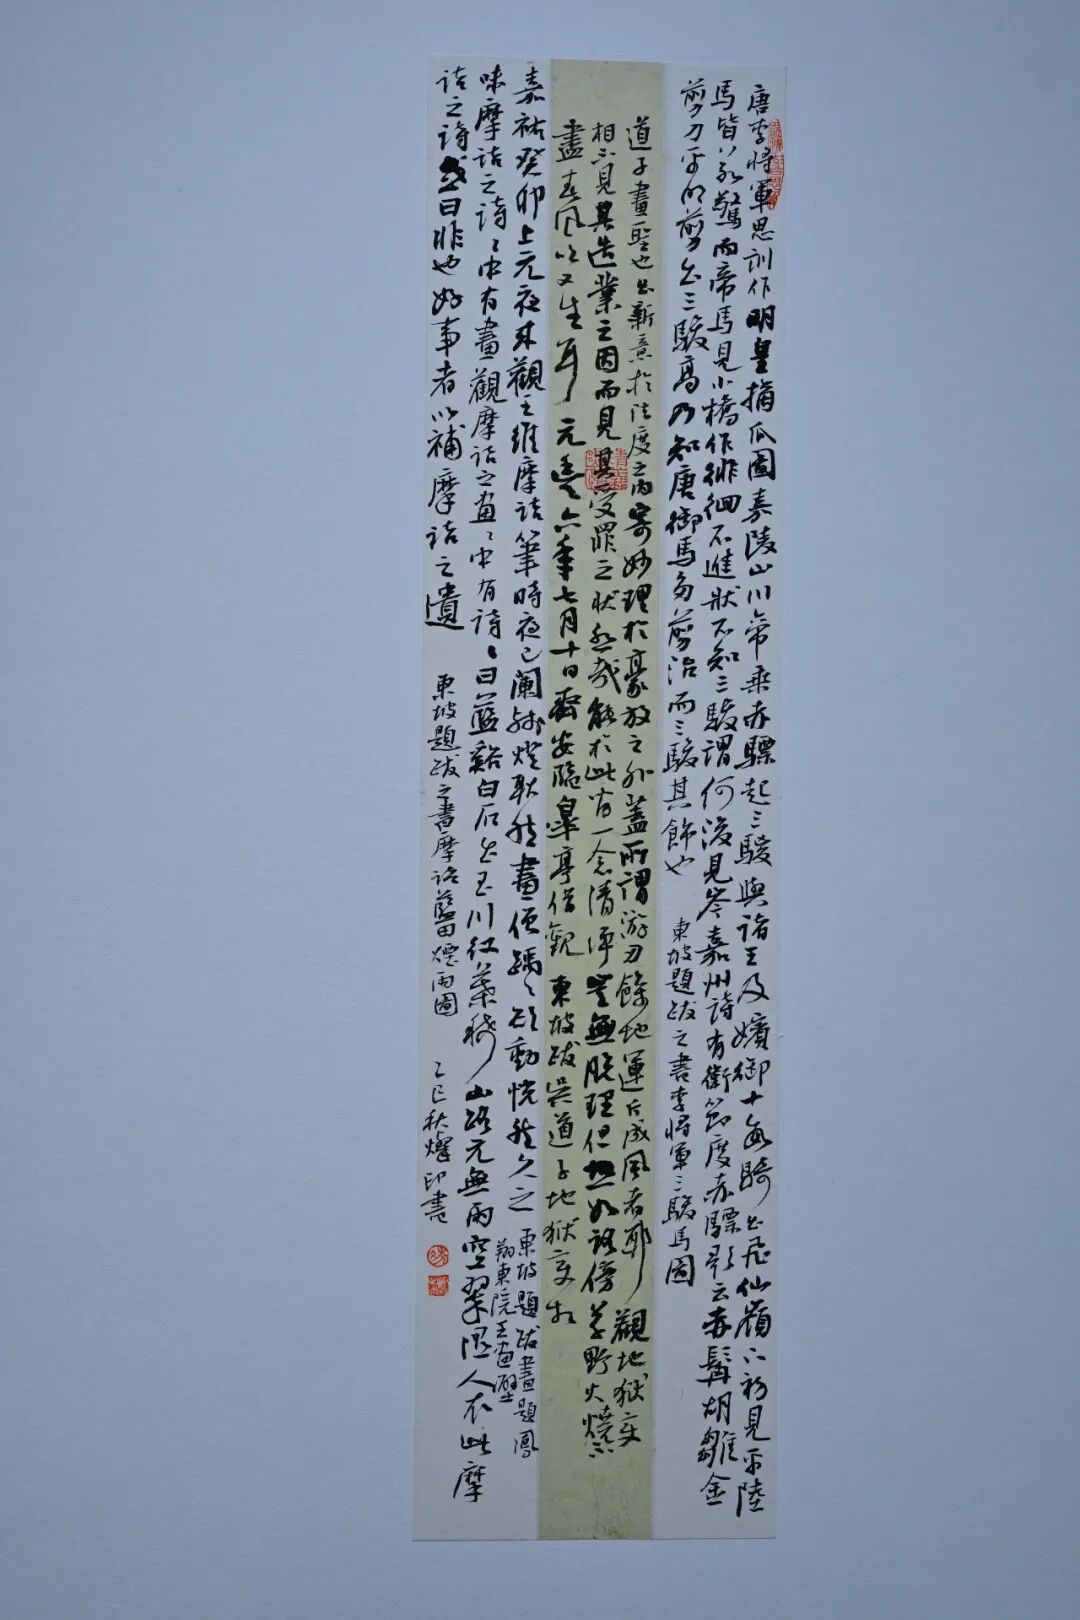 唐李將軍思訓作明皇摘瓜圖嘉陵山川帝乘赤驃起三駿與諸王及嬪御十數騎出飛仙嶺下初見平陸
馬皆若驚而帝馬見小橋作徘徊不進狀不知三駿謂何後見岑嘉州詩有衛節度赤驃歌云赤髯胡雛金
剪刀平明剪出三駿高乃知唐御馬多剪治而三駿其飾也
東坡題跋之書李將軍三駿馬圖
道子畫聖也出新意於法度之內寄妙理於豪放之外蓋所謂游刃餘地運斤成風者耶觀地獄變
相不見其造業之因而見其受罪之狀悲哉能於此間一念清淨豈無脫理但恐如路傍草野火燒不
盡春風吹又生耳元豐六年七月十日齊安臨皋亭借觀東坡跋吳道子地獄變相
嘉祐癸卯上元夜來觀王維摩詰筆時夜已闌殘燈耿然畫僧踽踽欲動恍然久之
東坡題跋畫題鳳
翔東院王畫壁
味摩詰之詩詩中有畫觀摩詰之畫畫中有詩詩曰藍谿白石出玉川紅葉稀山路元無雨空翠濕人衣此摩
詰之詩或曰非也好事者以補摩詰之遺
東坡題跋之書摩詰藍田煙雨圖
乙巳秋 印書